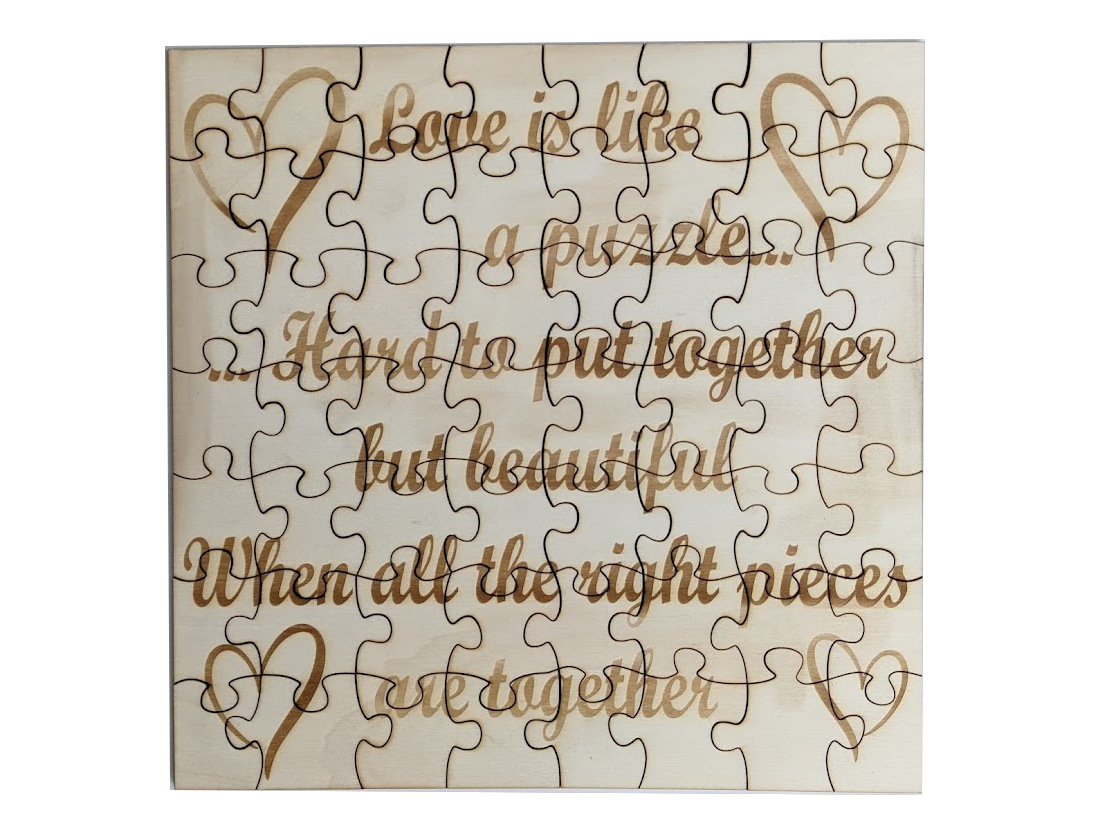 Love is like
a puzzle...
... Hard to put together
but beautiful
When all the right pieces
are together